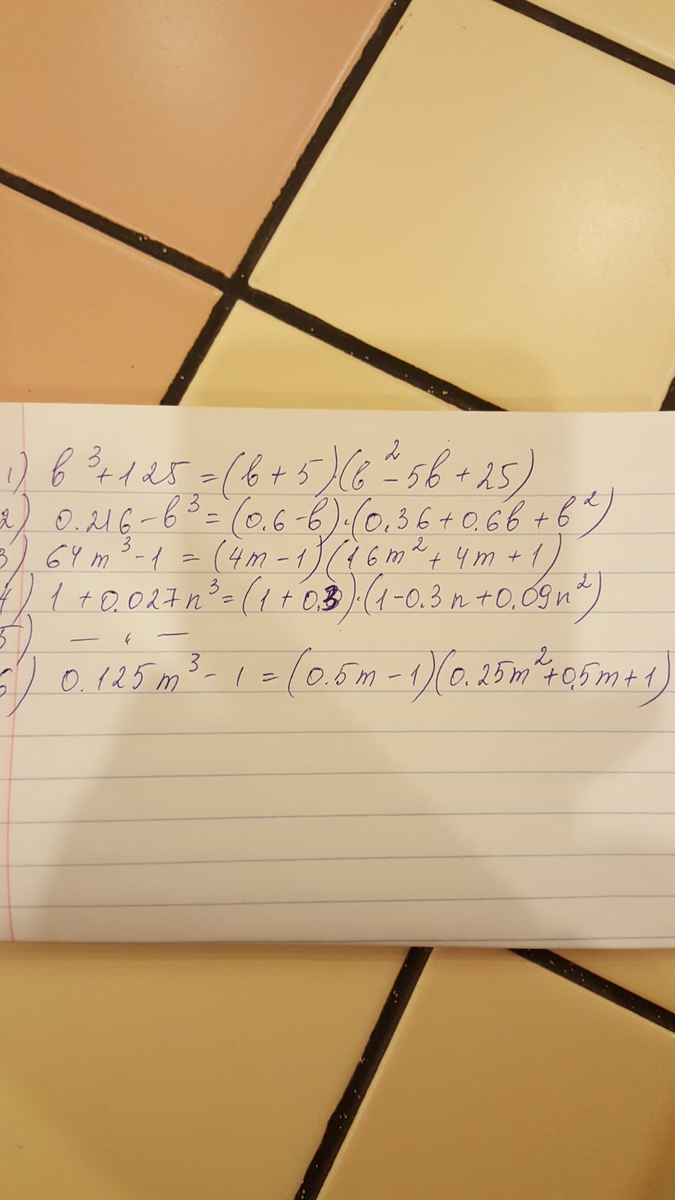 1) b³+125=(b+5)·(b²-5b+25)
2) 0.216-b³=(0.6-b)·(0.36+0.6b+b²)
3) 64m³-1=(4m-1)(16m²+4m+1)
4) 1+0.027n³=(1+0.3)·(1-0.3n+0.09n²)
5) — " —
6) 0.125m³-1=(0.5m-1)(0.25m²+0,5m+1)